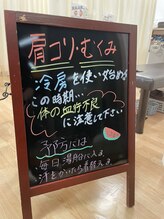 肩コリ・むくみ
冷房を使い始める
この時期…
体の血行不良
に注意して下さい
予防には
毎日湯船に入る
汗をかいたら着替える